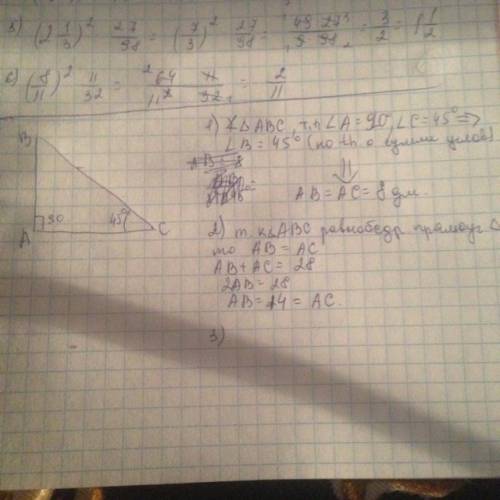 5) (2 1/3)² 27/98 = (7/3)² 27/98 = 49 27³ / 9 98₂ = 3/2 = 1 1/2
6) (8/11)² 11/32 = ²64 11 / 11² 32₁ = 2/11
B
A 90 45° C
1) ΔABC, т.к ∠A = 90, ∠C = 45° ⇒
∠B = 45° (по th. о сумме углов)
⇓
AB = AC = 8 дм.
2) т. к ΔABC равнобедр прямоуг.
то AB = AC
AB + AC = 28
2AB = 28
AB = 14 = AC.
3)